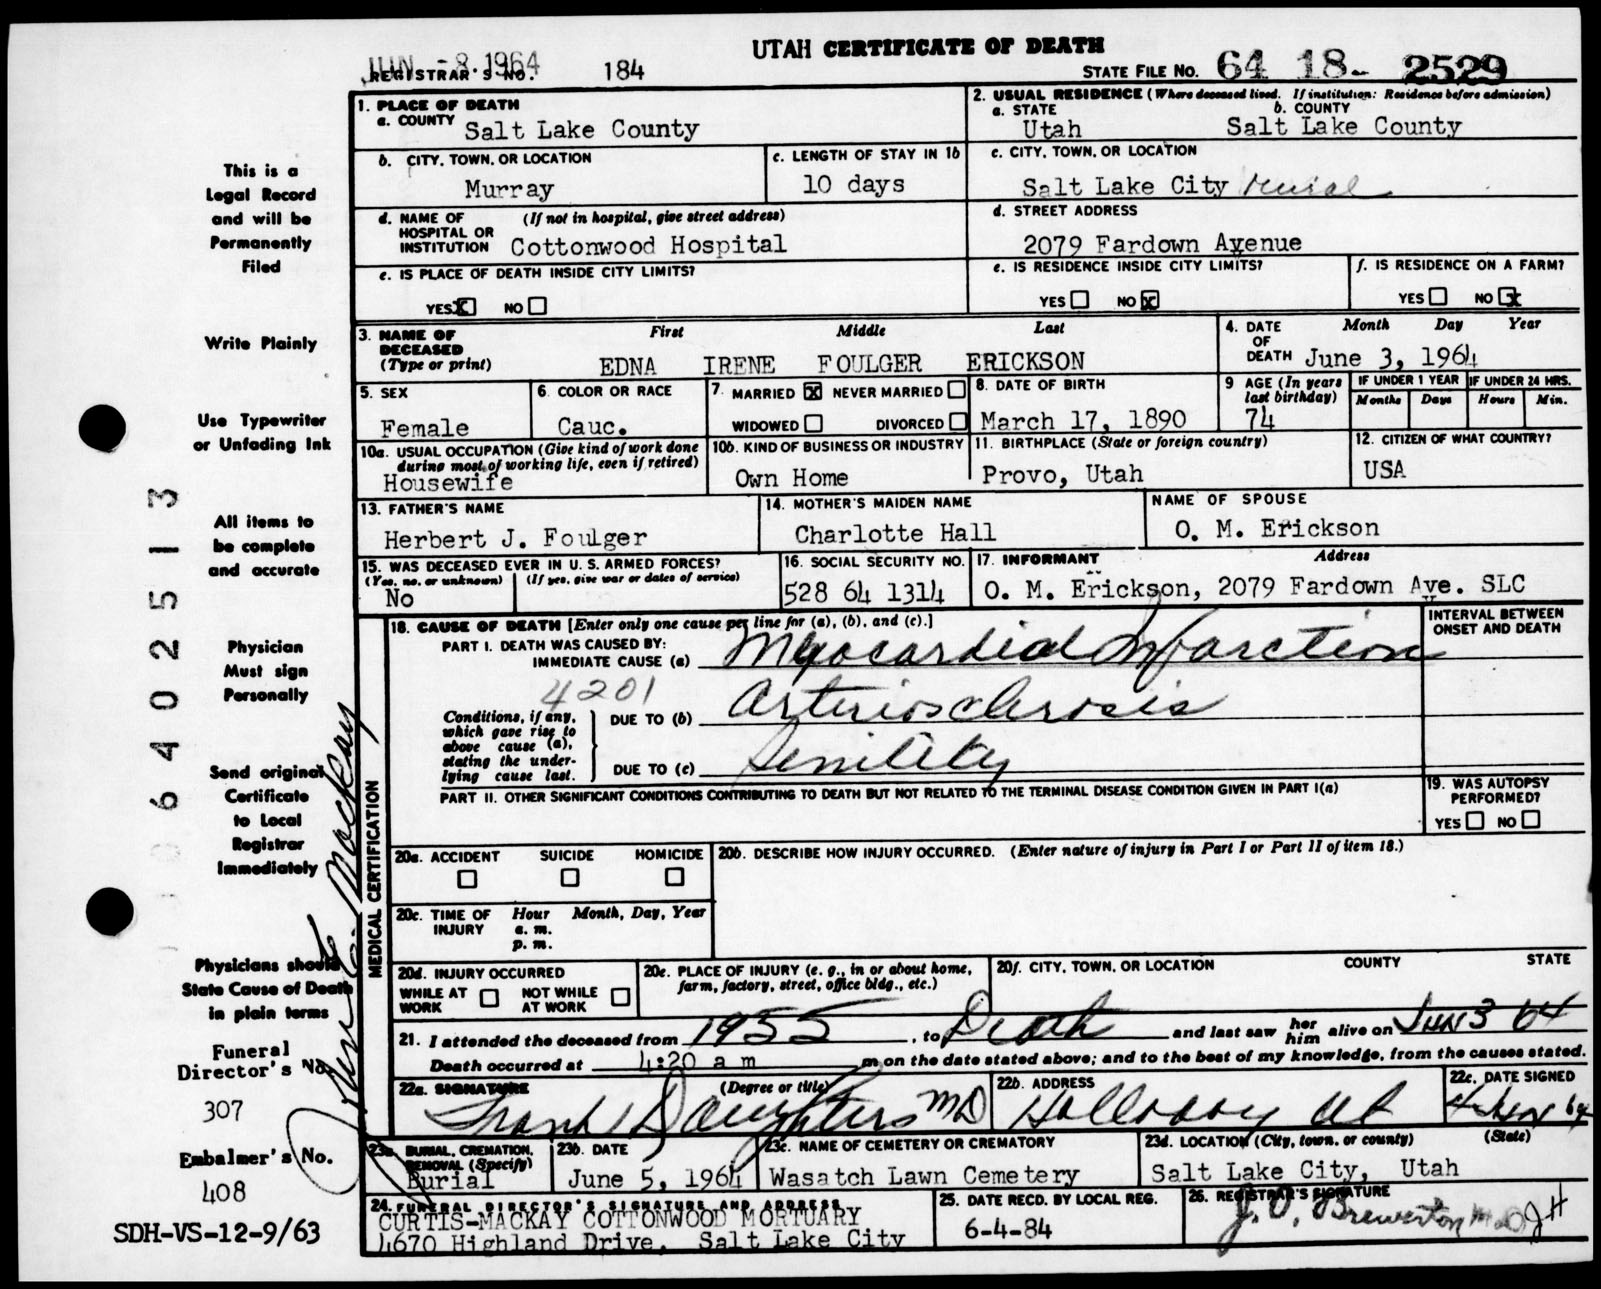 UTAH CERTIFICATE OF DEATH
JUN -8 1964
REGISTRAR'S NO. 184
STATE FILE NO. 64 18- 2529
1. PLACE OF DEATH
a. COUNTY Salt Lake County
2. USUAL RESIDENCE (Where deceased lived. If institution: Residence before admission)
a. STATE Utah b. COUNTY Salt Lake County
b. CITY, TOWN, OR LOCATION Murray
c. LENGTH OF STAY IN 1b 10 days
c. CITY, TOWN, OR LOCATION Salt Lake City rural
d. NAME OF HOSPITAL OR INSTITUTION (If not in hospital, give street address) Cottonwood Hospital
d. STREET ADDRESS 2079 Fardown Avenue
e. IS PLACE OF DEATH INSIDE CITY LIMITS?
YES X NO
e. IS RESIDENCE INSIDE CITY LIMITS?
YES NO X
f. IS RESIDENCE ON A FARM?
YES NO X
3. NAME OF DECEASED (Type or print) First Middle Last
EDNA IRENE FOULGER ERICKSON
4. DATE OF DEATH Month Day Year
June 3, 1964
5. SEX Female
6. COLOR OR RACE Cauc.
7. MARRIED X NEVER MARRIED
WIDOWED DIVORCED
8. DATE OF BIRTH March 17, 1890
9 AGE (In years last birthday) 74
IF UNDER 1 YEAR Months Days
IF UNDER 24 HRS. Hours Min.
10a. USUAL OCCUPATION (Give kind of work done during most of working life, even if retired)
Housewife
10b. KIND OF BUSINESS OR INDUSTRY
Own Home
11. BIRTHPLACE (State or foreign country)
Provo, Utah
12. CITIZEN OF WHAT COUNTRY?
USA
13. FATHER'S NAME
Herbert J. Foulger
14. MOTHER'S MAIDEN NAME
Charlotte Hall
NAME OF SPOUSE
O. M. Erickson
15. WAS DECEASED EVER IN U. S. ARMED FORCES?
(Yes, no, or unknown) (If yes, give war or dates of service)
No
16. SOCIAL SECURITY NO.
528 64 1314
17. INFORMANT Address
O. M. Erickson, 2079 Fardown Ave. SLC
18. CAUSE OF DEATH [Enter only one cause per line for (a), (b), and (c).]
INTERVAL BETWEEN ONSET AND DEATH
PART I. DEATH WAS CAUSED BY:
IMMEDIATE CAUSE (a) Myocardial Infarction
4201
Conditions, if any, which gave rise to above cause (a), stating the underlying cause last.
DUE TO (b) Arteriosclerosis
DUE TO (c) Senility
PART II. OTHER SIGNIFICANT CONDITIONS CONTRIBUTING TO DEATH BUT NOT RELATED TO THE TERMINAL DISEASE CONDITION GIVEN IN PART I(a)
19. WAS AUTOPSY PERFORMED?
YES NO
MEDICAL CERTIFICATION
20a. ACCIDENT SUICIDE HOMICIDE
20b. DESCRIBE HOW INJURY OCCURRED. (Enter nature of injury in Part I or Part II of item 18.)
20c. TIME OF INJURY Hour Month, Day, Year
a. m.
p. m.
20d. INJURY OCCURRED
WHILE AT WORK NOT WHILE AT WORK
20e. PLACE OF INJURY (e. g., in or about home, farm, factory, street, office bldg., etc.)
20f. CITY, TOWN, OR LOCATION COUNTY STATE
21. I attended the deceased from 1955, to Death and last saw her him alive on Jun 3 64
Death occurred at 4:20 a m m on the date stated above; and to the best of my knowledge, from the causes stated.
22a. SIGNATURE (Degree or title)
Frank Daughters MD
22b. ADDRESS
Holladay Ut
22c. DATE SIGNED
4 Jun 64
23a. BURIAL, CREMATION, REMOVAL (Specify)
Burial
23b. DATE
June 5, 1964
23c. NAME OF CEMETERY OR CREMATORY
Wasatch Lawn Cemetery
23d. LOCATION (City, town, or county) (State)
Salt Lake City, Utah
24. FUNERAL DIRECTOR'S SIGNATURE AND ADDRESS
CURTIS-MACKAY COTTONWOOD MORTUARY
4670 Highland Drive, Salt Lake City
25. DATE RECD. BY LOCAL REG.
6-4-84
26. REGISTRAR'S SIGNATURE
J. P. Brewerton M.D. JH
This is a
Legal Record
and will be
Permanently
Filed
Write Plainly
Use Typewriter
or Unfading Ink
All items to
be complete
and accurate
Physician
Must sign
Personally
Send original
Certificate
to Local
Registrar
Immediately
Physicians should
State Cause of Death
in plain terms
Funeral
Director's No.
307
Embalmer's No.
408
SDH-VS-12-9/63
64 02513
Mackay